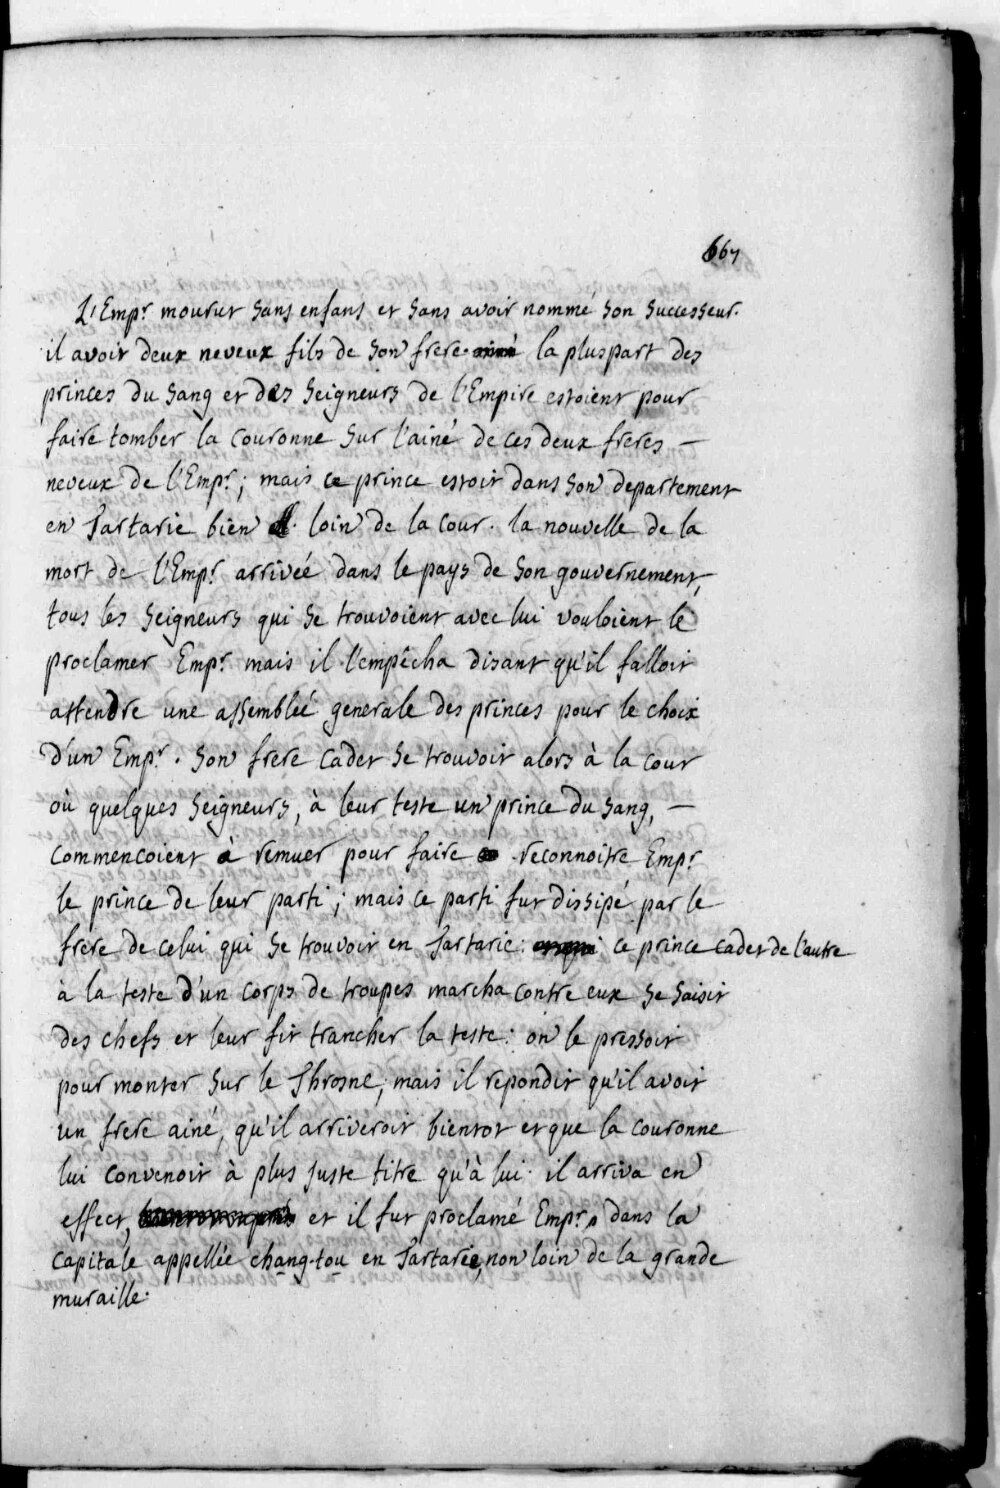 667
L'Emp.r mourut sans enfans et sans avoir nommé son successeur.
il avoit deux neveux fils de son frere la pluspart des
princes du sang et des seigneurs de l'Empire estoient pour
faire tomber la couronne sur l'ainé de ces deux freres —
neveux de l'Emp.r; mais ce prince estoit dans son departement
en Tartarie bien loin de la cour. la nouvelle de la
mort de l'Emp.r arrivée dans le pays de son gouvernement,
tous les seigneurs qui se trouvoient avec lui vouloient le
proclamer Emp.r mais il l'empêcha disant qu'il falloit
attendre une assemblée generale des princes pour le choix
d'un Emp.r. son frere cadet se trouvoit alors à la cour
où quelques seigneurs, à leur teste un prince du sang, —
commencoient à remuer pour faire reconnoitre Emp.r
le prince de leur parti; mais ce parti fut dissipé par le
frere de celui qui se trouvoit en Tartarie: ce prince cadet de l'autre
à la teste d'un corps de troupes marcha contre eux se saisit
des chefs et leur fit trancher la teste: on le pressoit
pour monter sur le Throsne, mais il repondit qu'il avoit
un frere ainé, qu'il arriveroit bientot et que la couronne
lui convenoit à plus juste titre qu'à lui. il arriva en
effect, et il fut proclamé Emp.r dans la
capitale appellée chang-tou en Tartarie, non loin de la grande
muraille.